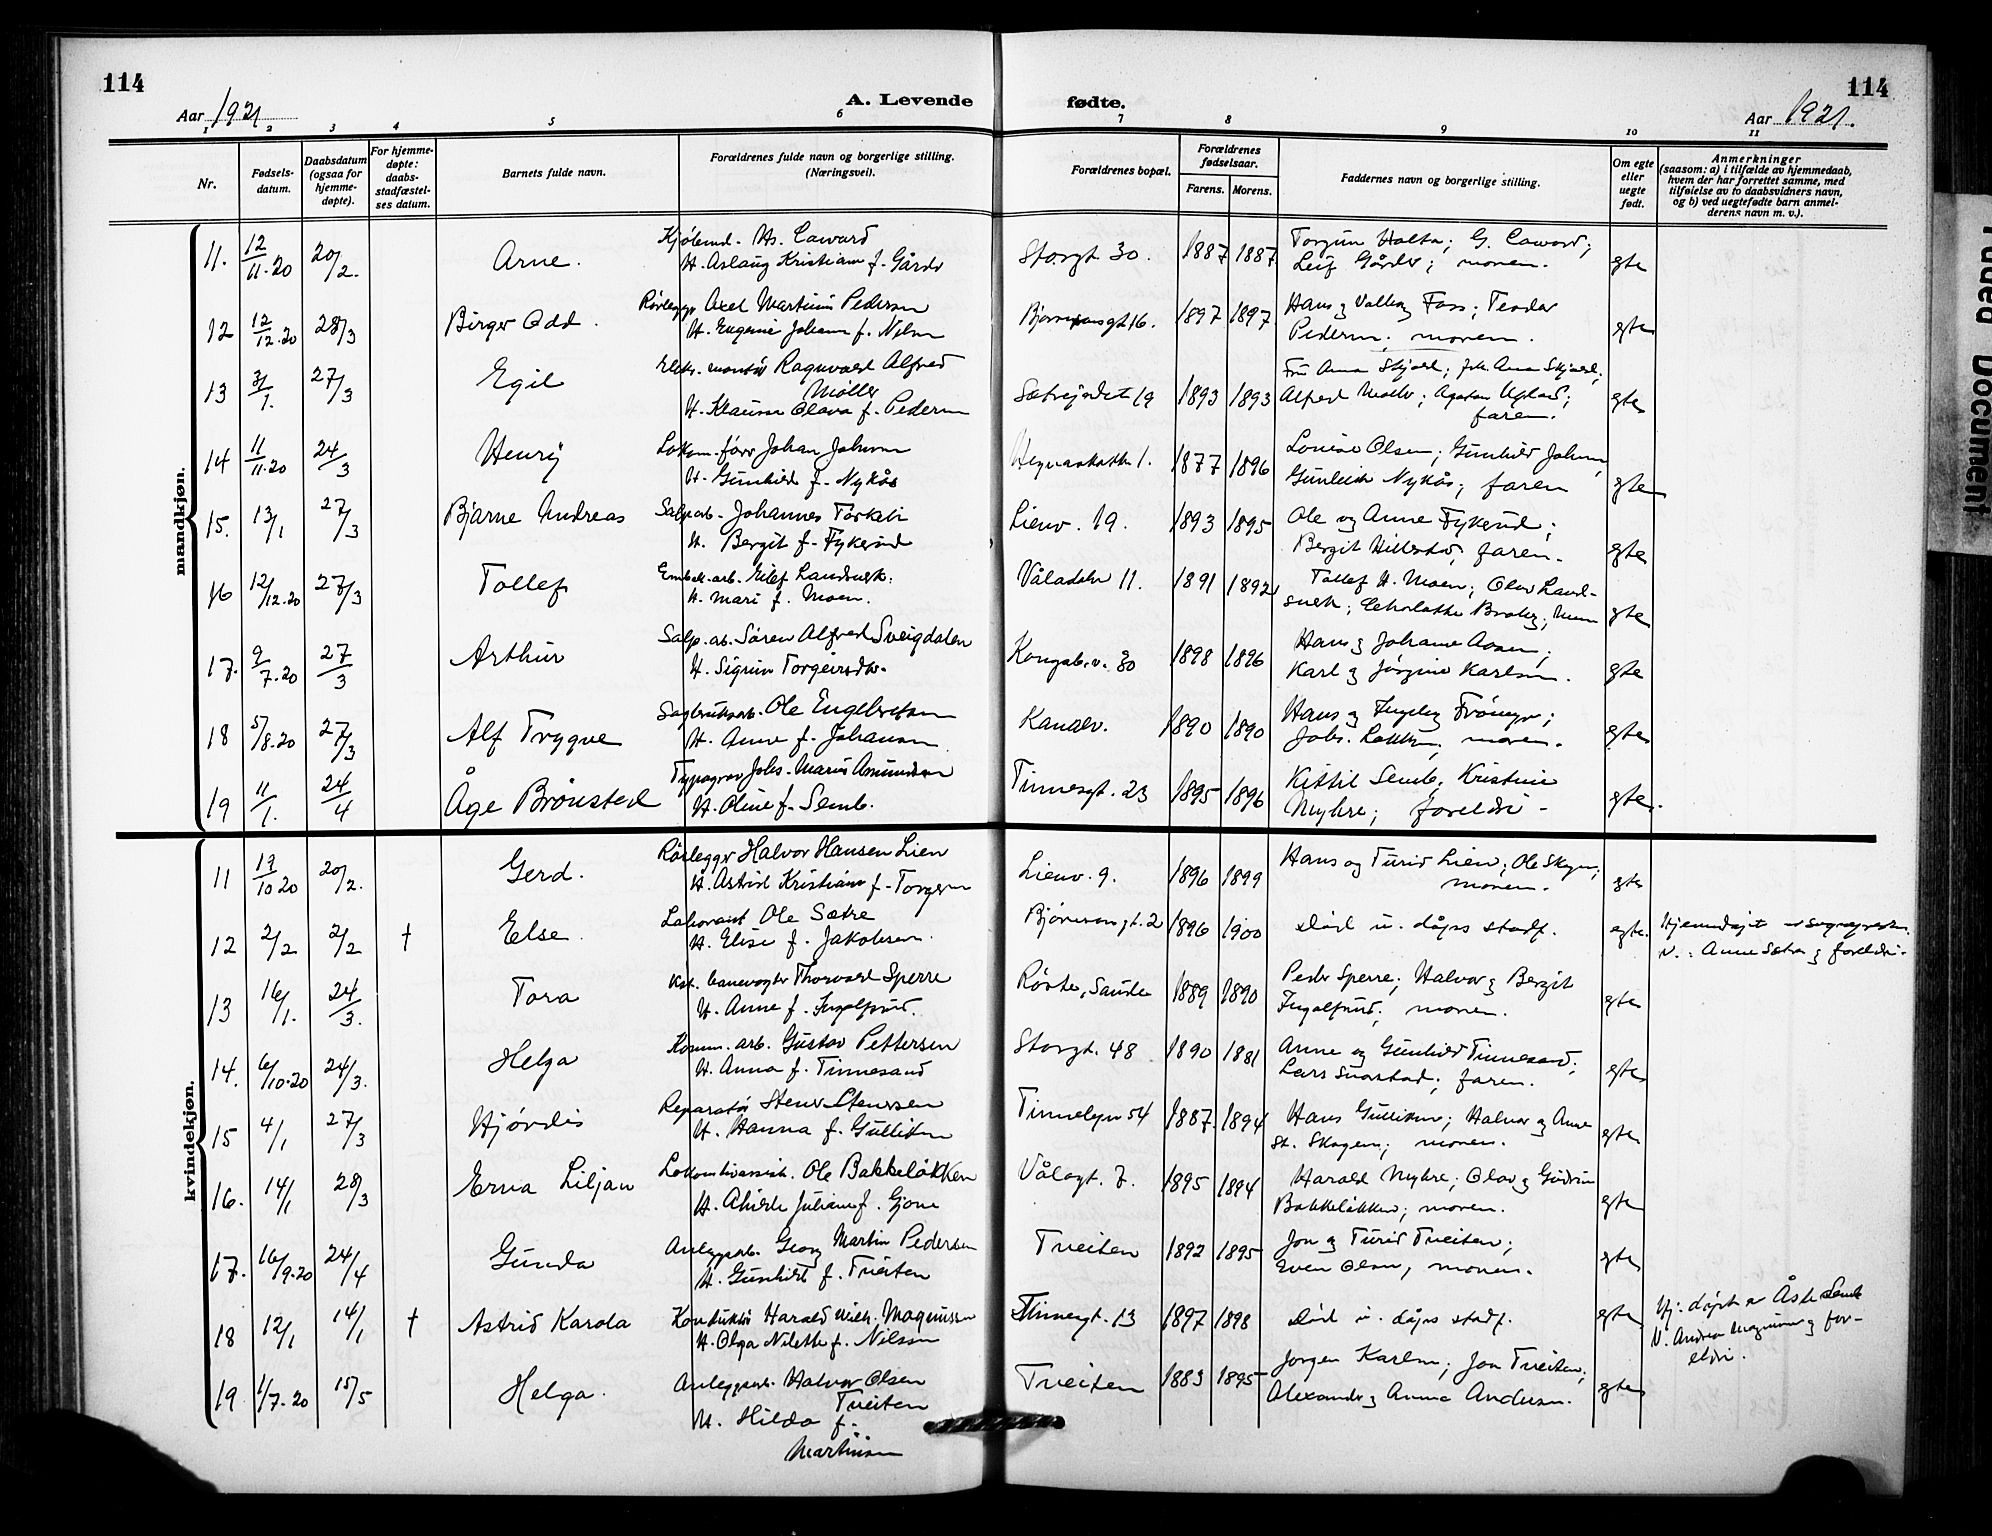 114
114
Aar 1921
A. Levende fødte.
Aar 1921.
1 2 3 4 5 6 7 8 9 10 11
Nr.
Fødsels-
datum.
Daabsdatum
(ogsaa for
hjemme-
døpte).
For hjemme-
døpte:
daabs-
stadfæstel-
ses datum.
Barnets fulde navn.
Forældrenes fulde navn og borgerlige stilling.
(Næringsvei).
Forældrenes bopæl.
Forældrenes
fødselsaar.
Farens. Morens.
Faddernes navn og borgerlige stilling.
Om egte
eller
uegte
født.
Anmerkninger
(saasom: a) i tilfælde av hjemmedaab,
hvem der har forrettet samme, med
tilføielse av to daabsvidners navn,
og b) ved uegtefødte barn anmel-
derens navn m. v.).
mandkjøn.
11. 12/11.20 20/2. Arne. Kjøbmd. Hs. Caward Storgt. 30. 1887 1887 Torgun Holta; G. Caward; egte
H. Aslaug Kristiane f. Gårder Leif Gårder; moren.
12 12/12.20 28/3 Birger Odd. Rørlegger Axel Martinius Pedersen 16. 1897 1897 Hans g Valborg Foss; Teodor egte
H. Eugenie Johanne f. Nilsen Pedersen; moren.
13 3/1. 27/3 Egil Elektr. montør Ragnvald Alfred Sætrejordet 19 1893 1893 Fru Anna Skjæel; egte
Møller Alfred Møller;
H. Klausine Olava f. Pedersen faren.
14 11/11.20 24/3 Henry Lokom. fører Johan Johnsen 1. 1877 1896 Louise Olsen; Gunhild Johnsen egte
H. Gunhild f. Nykås Gunleik Nykås; faren
15. 13/1 27/3 Bjarne Andreas Salp.arb. Johannes Torkels Lienv. 19. 1893 1895 Ole og Anne Fykerud; egte
H. Bergit f. Fykerud Bergit Hillestad, faren.
16 12/12.20 27/3 Tollef Embal. arb. Eilef Landsverk. Våladalen 11. 1891 1892 Tollef H. Moen; Olav Land- egte
H. Mari f. Moen. sverk;
17. 9/7.20 27/3 Arthur Salp. arb. Søren Alfred Sveigdalen Kongsb.v. 30 1898 1896 Hans g Johanne Aasen; egte
H. Sigrun Torgeirsdtr. Karl g Jørgine Karlsen.
18 5/8.20 27/3 Alf Trygve Sagbruksarb. Ole Engebretsen Kanalv. 1890 1890 Hans og Ingeborg egte
H. Anne f. Johansen Johs. Løkken, moren.
19 11/1. 24/4 Åge Brønsted Typograf Johs. Marius Amundsen Tinnesgt. 23 1895 1896 Kittil Semb, Kristine egte
H. Oline f. Semb. Myhre; foreldre
kvindekjøn.
11 17/10 20 20/2. Gerd. Rørlegger Halvor Hansen Lien Lienv. 9. 1896 1899 Hans og Turid Lien; Ole Skogen; egte
H. Astrid Kristiane f. Torgersen moren.
12 2/2 2/2 † Else Laborant Ole Sætre Bjørnsonsgt. 2 1896 1900 Død u. dåps stadf. egte. Hjemmedøpt av sogneprest.
H. Elise f. Jakobsen. V.: Anne Sætre g foreldre
13 16/1. 24/3. Tora Kst. banevogter Thorvald Sperre Røste, Saude 1889 1890 Peder Sperre; Halvor g Bergit egte
H. Anne f. Ingolfsrud. Ingolfsrud; moren.
14. 6/10.20 24/3. Helga Komm. arb. Gustav Pettersen Storgt. 48 1890 1881 Anne og Gunhild Tinnesand; egte
H. Anna f. Tinnesand Lars Snarstad; faren.
15 4/1 27/3 Hjørdis Reparatør Stener Stenersen Tinnebyen 54 1887 1894 Hans Gulliksen; Halvor og Anne egte
H. Hanna f. Gulliksen St. Skogen; moren.
16. 14/1 28/3 Erna Liljan Lokomotivassist. Ole Bakkeløkken Vålagt. 7. 1895 1894 Harald Myhre; Olav g Gudrun egte
H. Julianne f. Gjone Bakkeløkken; moren.
17. 16/9.20 24/4 Gunda Anleggsarb. Georg Martin Pedersen Tveiten 1892 1895 Jon g Turid Tveiten; egte
H. Gunhild f. Tveiten Even Olsen, moren.
18 12/1 14/1 † Astrid Karola Konduktør Harald Wilh. Magnussen Tinnesgt. 13 1897 1898 Død u. dåps stadf. egte Hj. døpt av Åste Semb
H. Olga Nilette f. Nilsen V. Andrea Magnussen g for-
eldre.
19 1/7.20 15/5 Helga. Anleggsarb. Halvor Olsen Tveiten 1883 1895 Jørgen Karlsen; Jon Tveiten; egte
Tveiten Alexander g Anna Andersen.
H. Hilda f.
Martinsen
Document